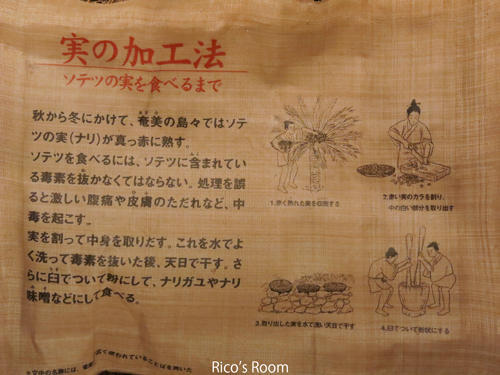 実の加工法
ソテツの実を食べるまで
秋から冬にかけて、奄美の島々ではソテ
ツの実(ナリ)が真っ赤に熟す。
ソテツを食べるには、ソテツに含まれてい
る毒素を抜かなくてはならない。処理を誤
ると激しい腹痛や皮膚のただれなど、中
毒を起こす。
実を割って中身を取りだす。これを水でよ
く洗って毒素を抜いた後、天日で干す。さ
らに臼でついて粉にして、ナリガユやナリ
味噌などにして食べる。
1.赤く熟れた実を収穫する
2.赤い実のカラを割り、
中の白い部分を取り出す
3.取り出した実を水で洗い天日で干す
4.臼でついて粉状にする
広く使われていることばを用いた
Rico's Room